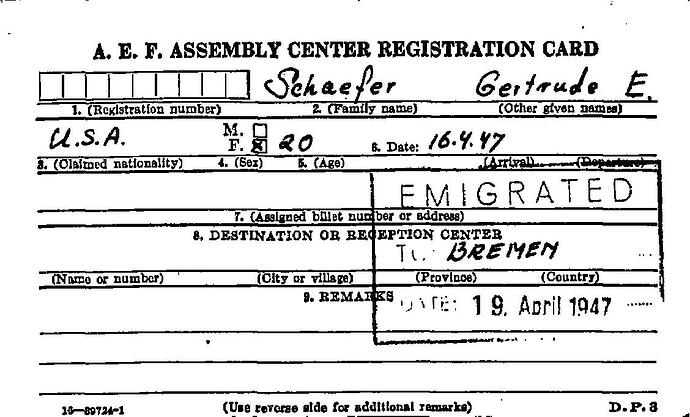 A. E. F. ASSEMBLY CENTER REGISTRATION CARD
Schaefer Gertrude E.
1. (Registration number) 2. (Family name) (Other given names)
U.S.A. M. F. 20 6. Date: 16.4.47
3. (Claimed nationality) 4. (Sex) 5. (Age) (Arrival) (Departure)
EMIGRATED
7. (Assigned billet number or address)
8. DESTINATION OR RECEPTION CENTER
TO: BREMEN
(Name or number) (City or village) (Province) (Country)
9. REMARKS DATE: 19. April 1947
16—39724-1 (Use reverse side for additional remarks) D.P. 3